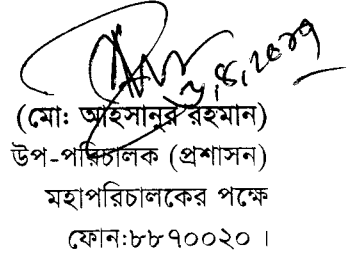 (মো: আহসানুর রহমান)
উপ-পরিচালক (প্রশাসন)
মহাপরিচালকের পক্ষে
ফোন:৮৮৭০০২০।